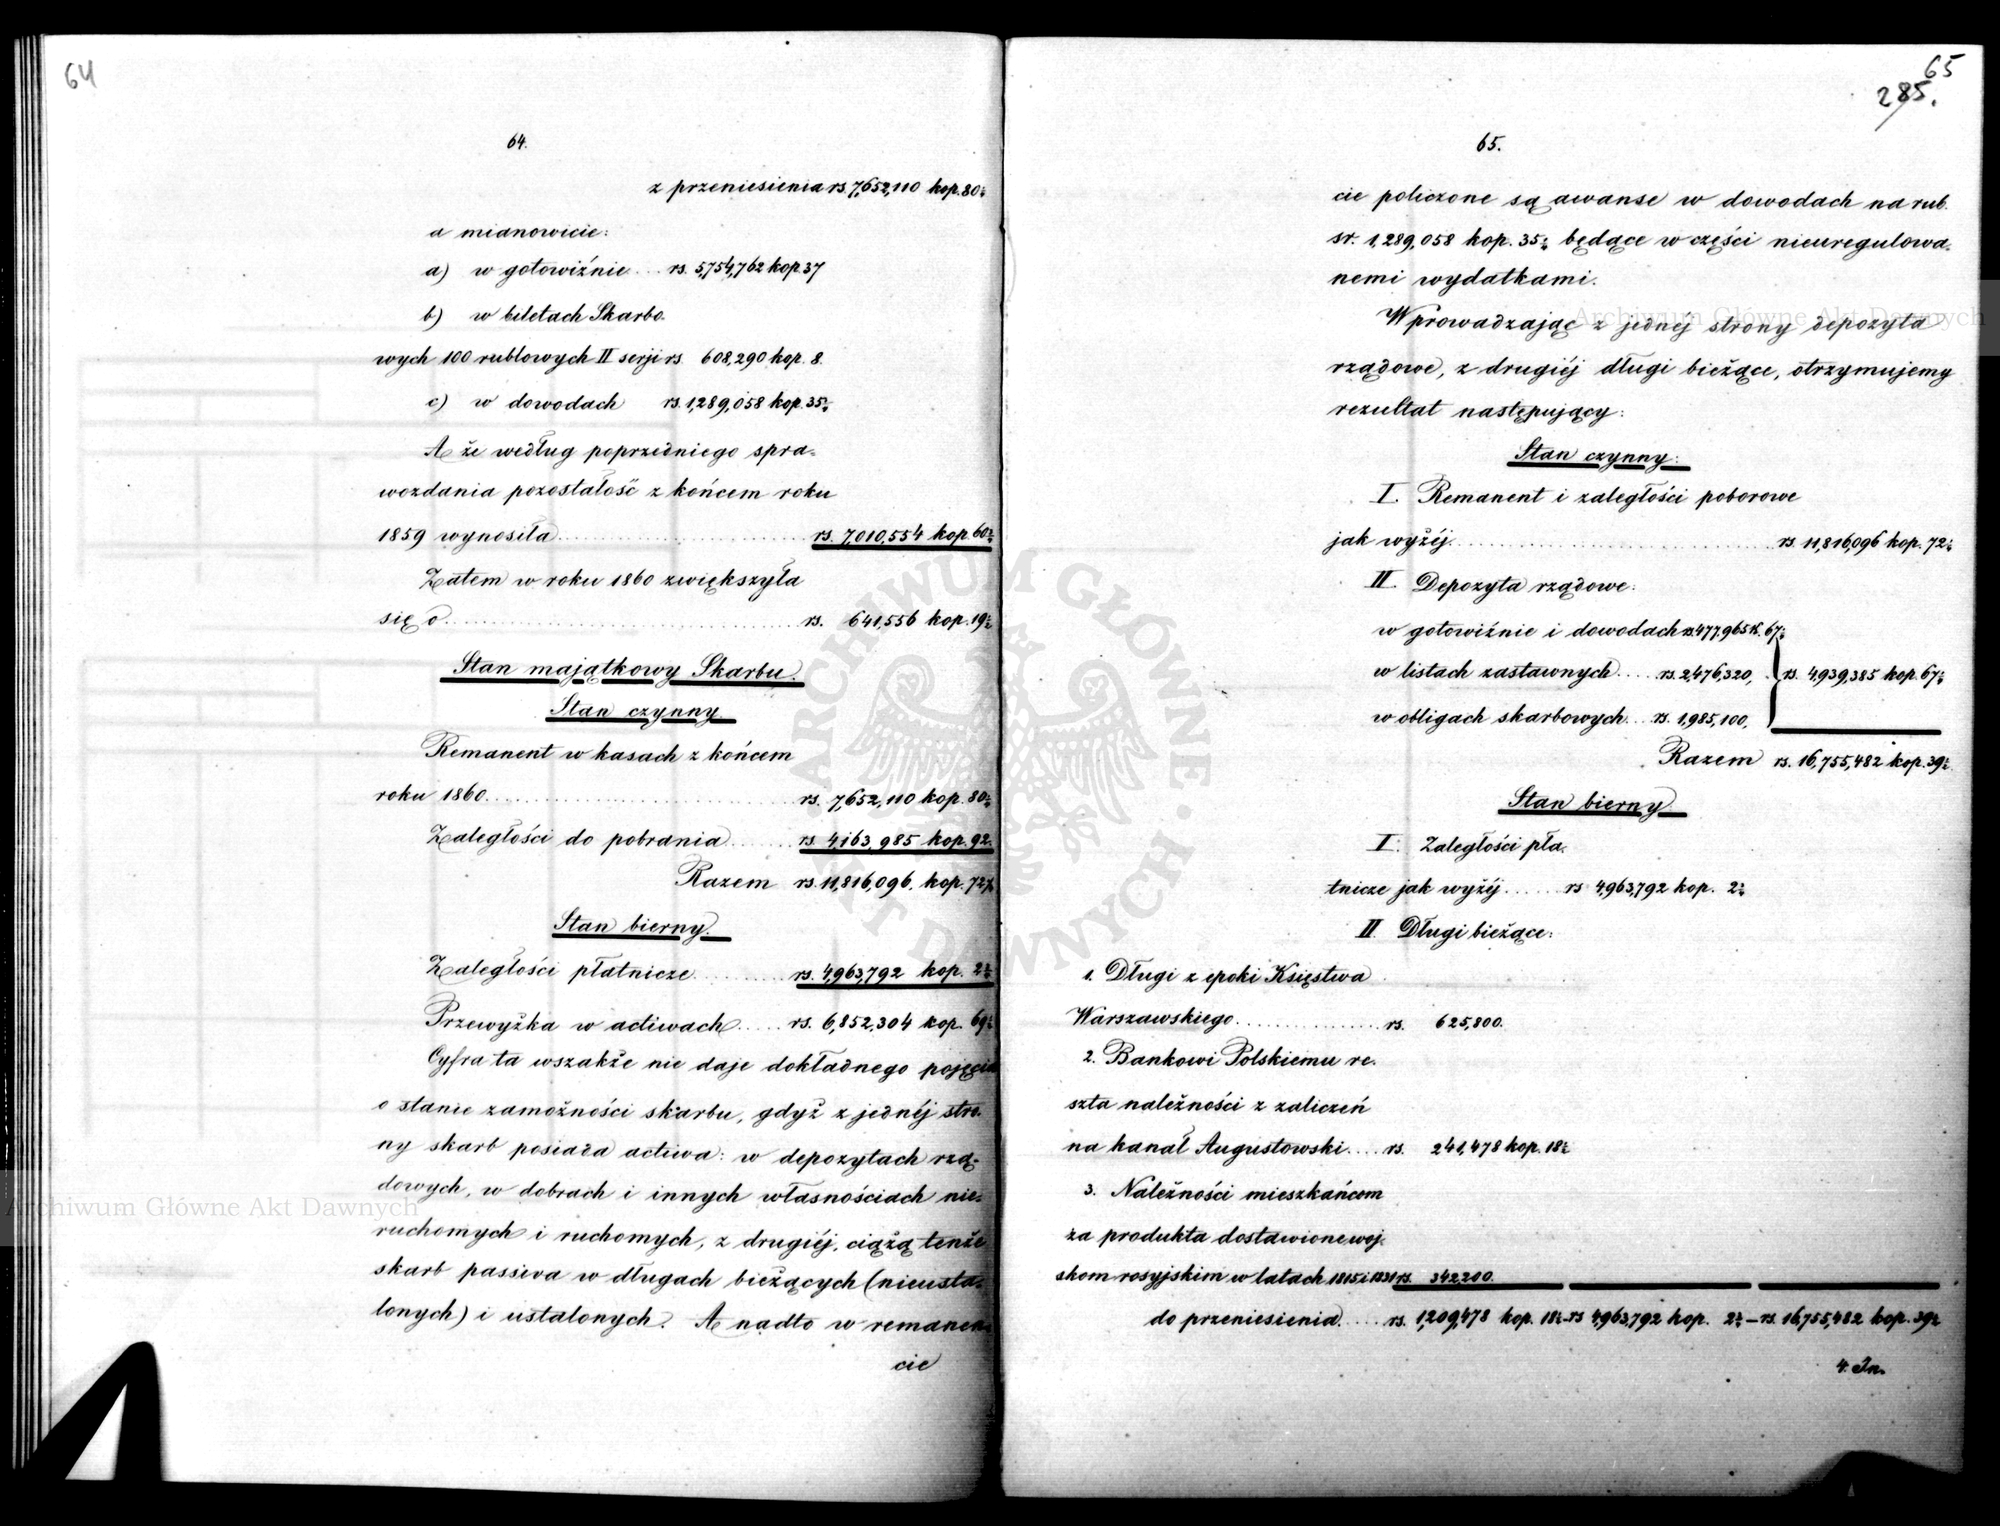 64
64.
z przeniesienia rs. 7,652,110 kop. 80½
a mianowicie:
a) w gotowiźnie .... rs. 5,754,762 kop. 37
b) w biletach Skarbo-
wych 100 rublowych II serji rs. 608,290 kop. 8.
c) w dowodach rs. 1,289,058 kop. 35½
A że według poprzedniego spra-
wozdania pozostałość z końcem roku
1859 wynosiła .......... rs. 7,010,554 kop. 60½
Zatem w roku 1860 zwiększyła
się o .......... rs. 641,556 kop. 19½
Stan majątkowy Skarbu.
Stan czynny.
Remanent w kasach z końcem
roku 1860 .......... rs. 7,652,110 kop. 80½
Zaległości do pobrania ...... rs. 4,163,985 kop. 92.
Razem rs. 11,816,096. kop. 72½
Stan bierny.
Zaległości płatnicze ...... rs. 4,963,792 kop. 2½
Przewyżka w actiwach ..... rs. 6,852,304 kop. 69½
Cyfra ta wszakże nie daje dokładnego pojęcia
o stanie zamożności skarbu, gdyż z jednéj stro-
ny skarb posiada activa: w depozytach rzą-
dowych, w dobrach i innych własnościach nie-
ruchomych i ruchomych, z drugiéj, ciążą tenże
skarb passiva w długach bieżących (nieusta-
lonych) i ustalonych. A nadto w remanen-
cie
65
285.
65.
cie policzone są awanse w dowodach na rub.
sr. 1,289,058 kop. 35½ będące w części nieuregulowa-
nemi wydatkami.
Wprowadzając z jednéj strony depozyta
rządowe, z drugiéj długi bieżące, otrzymujemy
rezultat następujący:
Stan czynny:
I. Remanent i zaległości poborowe
jak wyżéj .......... rs. 11,816,096 kop. 72½
II. Depozyta rządowe:
w gotowiźnie i dowodach rs. 477,965 k. 67½
w listach zastawnych .... rs. 2,476,320, rs. 4,939,385 kop. 67½
w obligach skarbowych ... rs. 1,985,100,
Razem rs. 16,755,482 kop. 39½
Stan bierny.
I. Zaległości pła-
tnicze jak wyżéj ...... rs 4,963,792 kop. 2½
II. Długi bieżące:
1. Długi z epoki Księstwa
Warszawskiego .......... rs. 625,800.
2. Bankowi Polskiemu re-
szta należności z zaliczeń
na kanał Augustowski .... rs. 241,478 kop. 18½
3. Należności mieszkańcom
za produkta dostawione woj-
skom rosyjskim w latach 1815 i 1831 rs. 342,200.
do przeniesienia .... rs. 1,209,478 kop. 18½ - rs 4,963,792 kop. 2½ - rs. 16,755,482 kop. 39½
4. In-
Archiwum Główne Akt Dawnych
Archiwum Główne Akt Dawnych
ARCHIWUM GŁÓWNE · AKT DAWNYCH ·